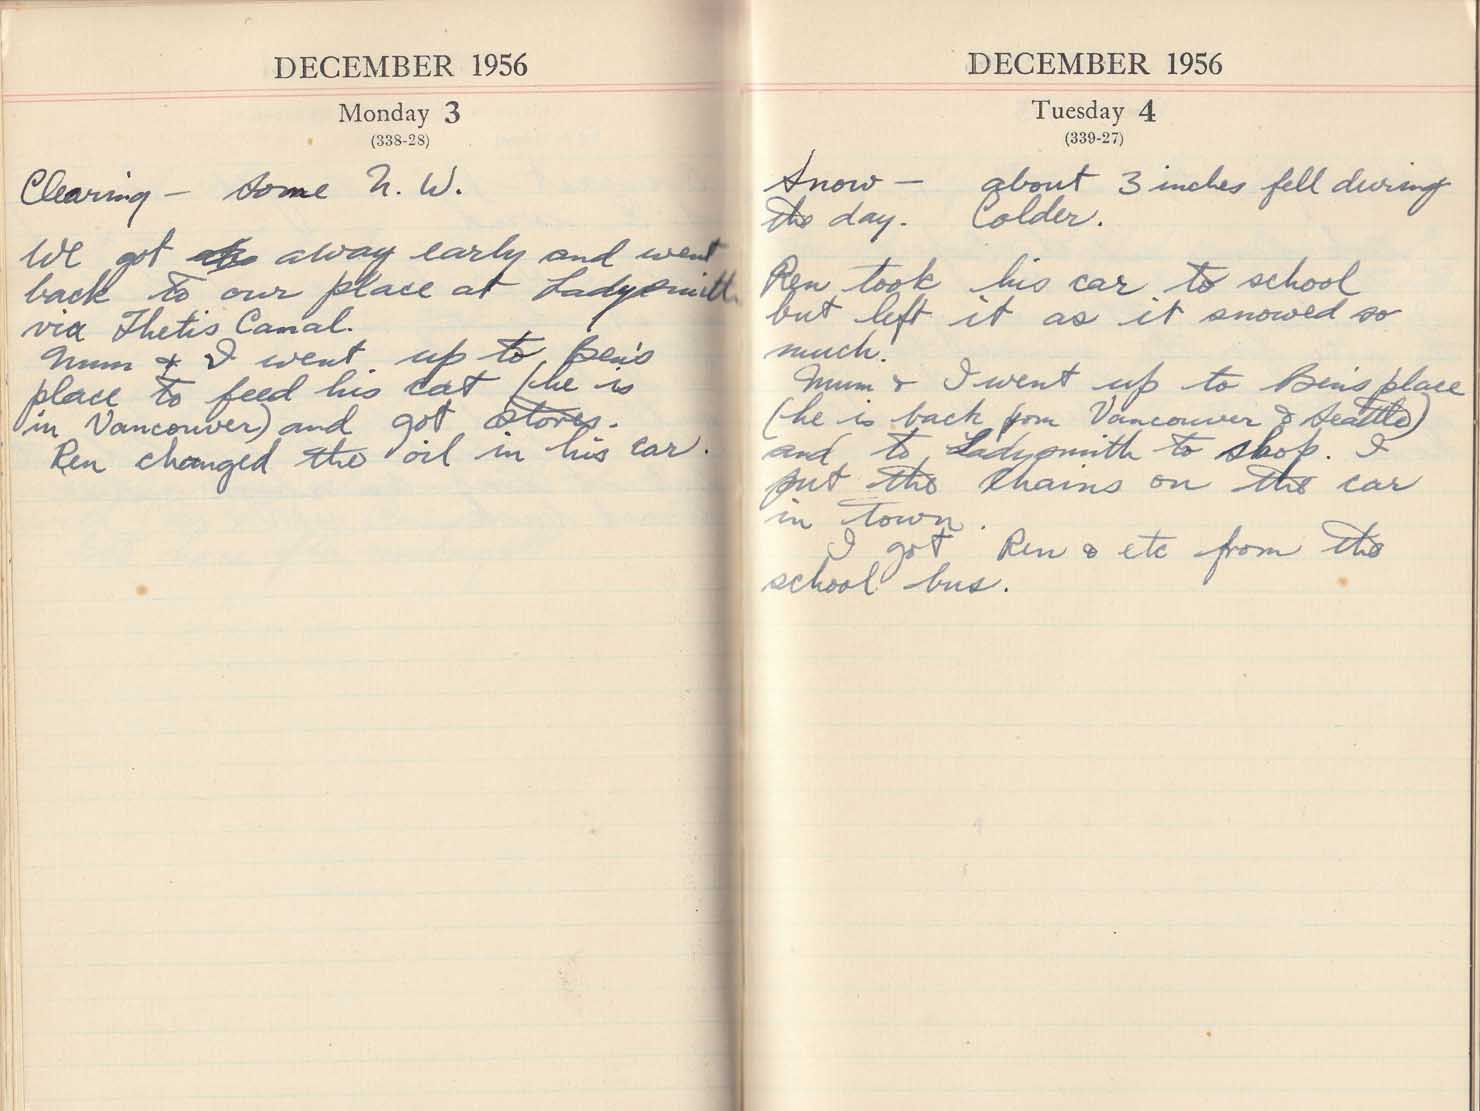 DECEMBER 1956
Monday 3
(338-28)
Clearing – some N. W.
We got away early and went
back to our place at Ladysmith
via Thetis Canal.
Mum & I went up to Ben's
place to feed his cat (he is
in Vancouver) and got stores.
Ren changed the oil in his car.
DECEMBER 1956
Tuesday 4
(339-27)
Snow – about 3 inches fell during
the day. Colder.
Ren took his car to school
but left it as it snowed so
much.
Mum & I went up to Ben's place
(he is back from Vancouver & Seattle)
and to Ladysmith to shop. I
put the chains on the car
in town.
I got Ren & etc from the
school bus.